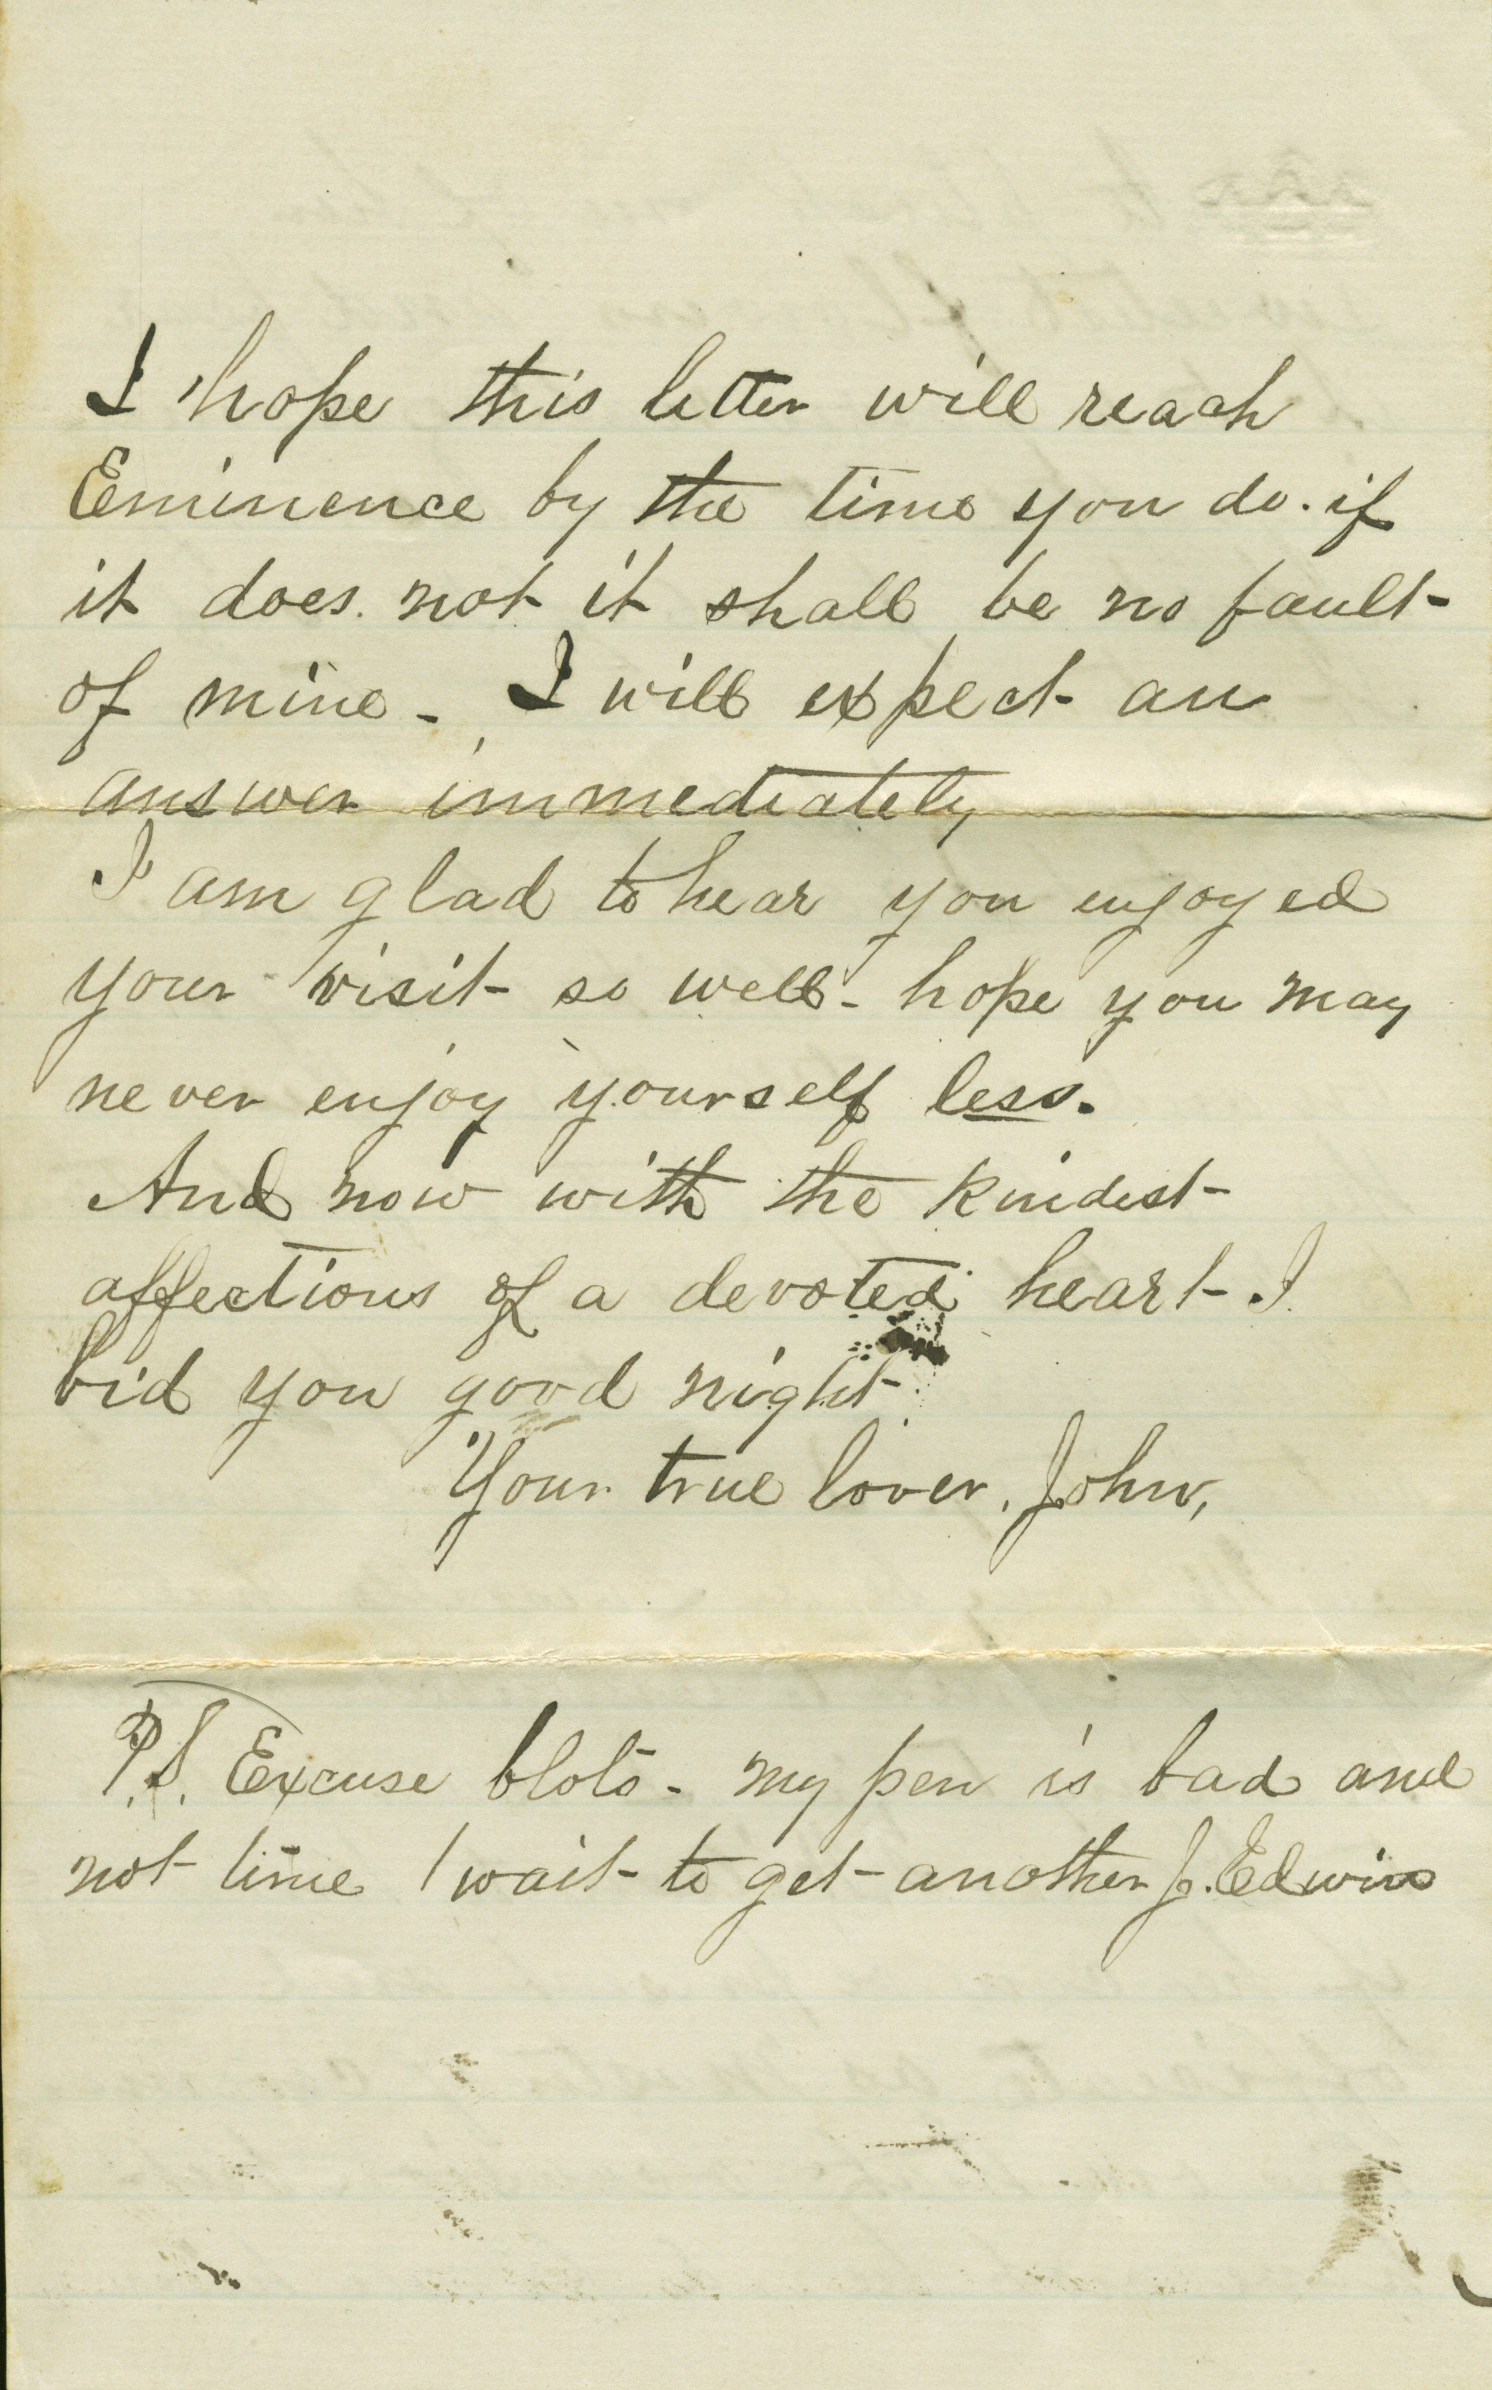 I hope this letter will reach
Eminence by the time you do. if
it does not it shall be no fault
of mine - I will expect an
answer immediately
I am glad to hear you enjoyed
your visit so well - hope you may
never enjoy yourself less.
And now with the kindest
affections of a devoted heart I
bid you good night
Your true lover, John,
P.S. Excuse blots - my pen is bad and
not time / wait to get another J. Edwin